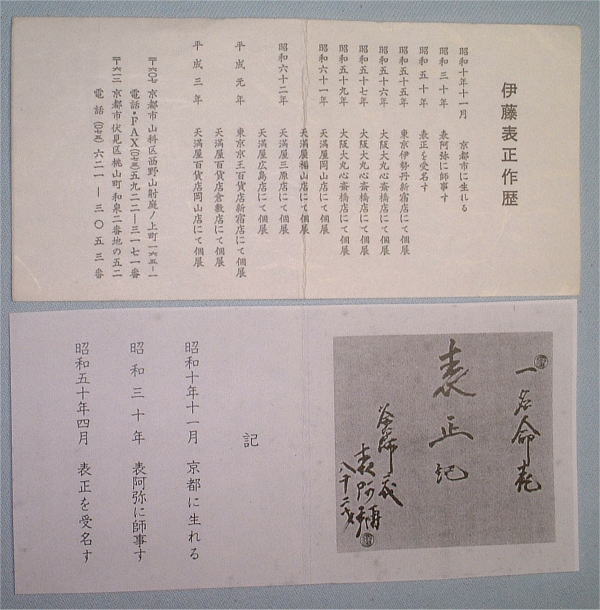 伊藤表正作歴
昭和十年十一月 京都市に生れる
昭和三十年 表阿弥に師事す
昭和五十年 表正を受名す
昭和五十五年 東京伊勢丹新宿店にて個展
昭和五十六年 大阪大丸心斎橋店にて個展
昭和五十七年 大阪大丸心斎橋店にて個展
昭和五十九年 大阪大丸心斎橋店にて個展
昭和六十一年 天満屋岡山店にて個展
天満屋福山店にて個展
昭和六十二年 天満屋三原店にて個展
天満屋広島店にて個展
平成元年 東京京王百貨店新宿店にて個展
天満屋百貨店倉敷店にて個展
平成三年 天満屋百貨店岡山店にて個展
〒六〇七 京都市山科区西野山射庭ノ上町一六五ー一
電話・FAX(〇七五)五九二ー三一七一番
〒六一二 京都市伏見区桃山町和泉二番地の五二
電話(〇七五)六二一ー三〇五三番
一名命表
表正記
表阿弥
八十二才
記
昭和十年十一月 京都に生れる
昭和三十年 表阿弥に師事す
昭和五十年四月 表正を受名す